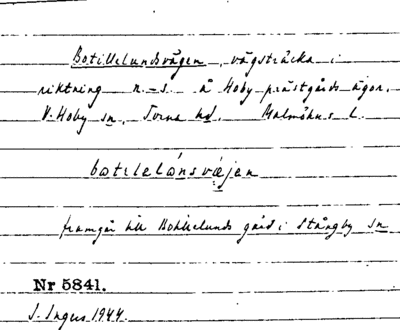 Botillelundsvägen, vägsträcka i
riktning n.-s. å Hoby prästgårds ägor.
V. Hoby sn, Torna hd. Malmöhus l.
botilelónsvæjen
framgår till Botillelunds gård i Stångby sn
Nr 5841.
J. Ingers 1944.